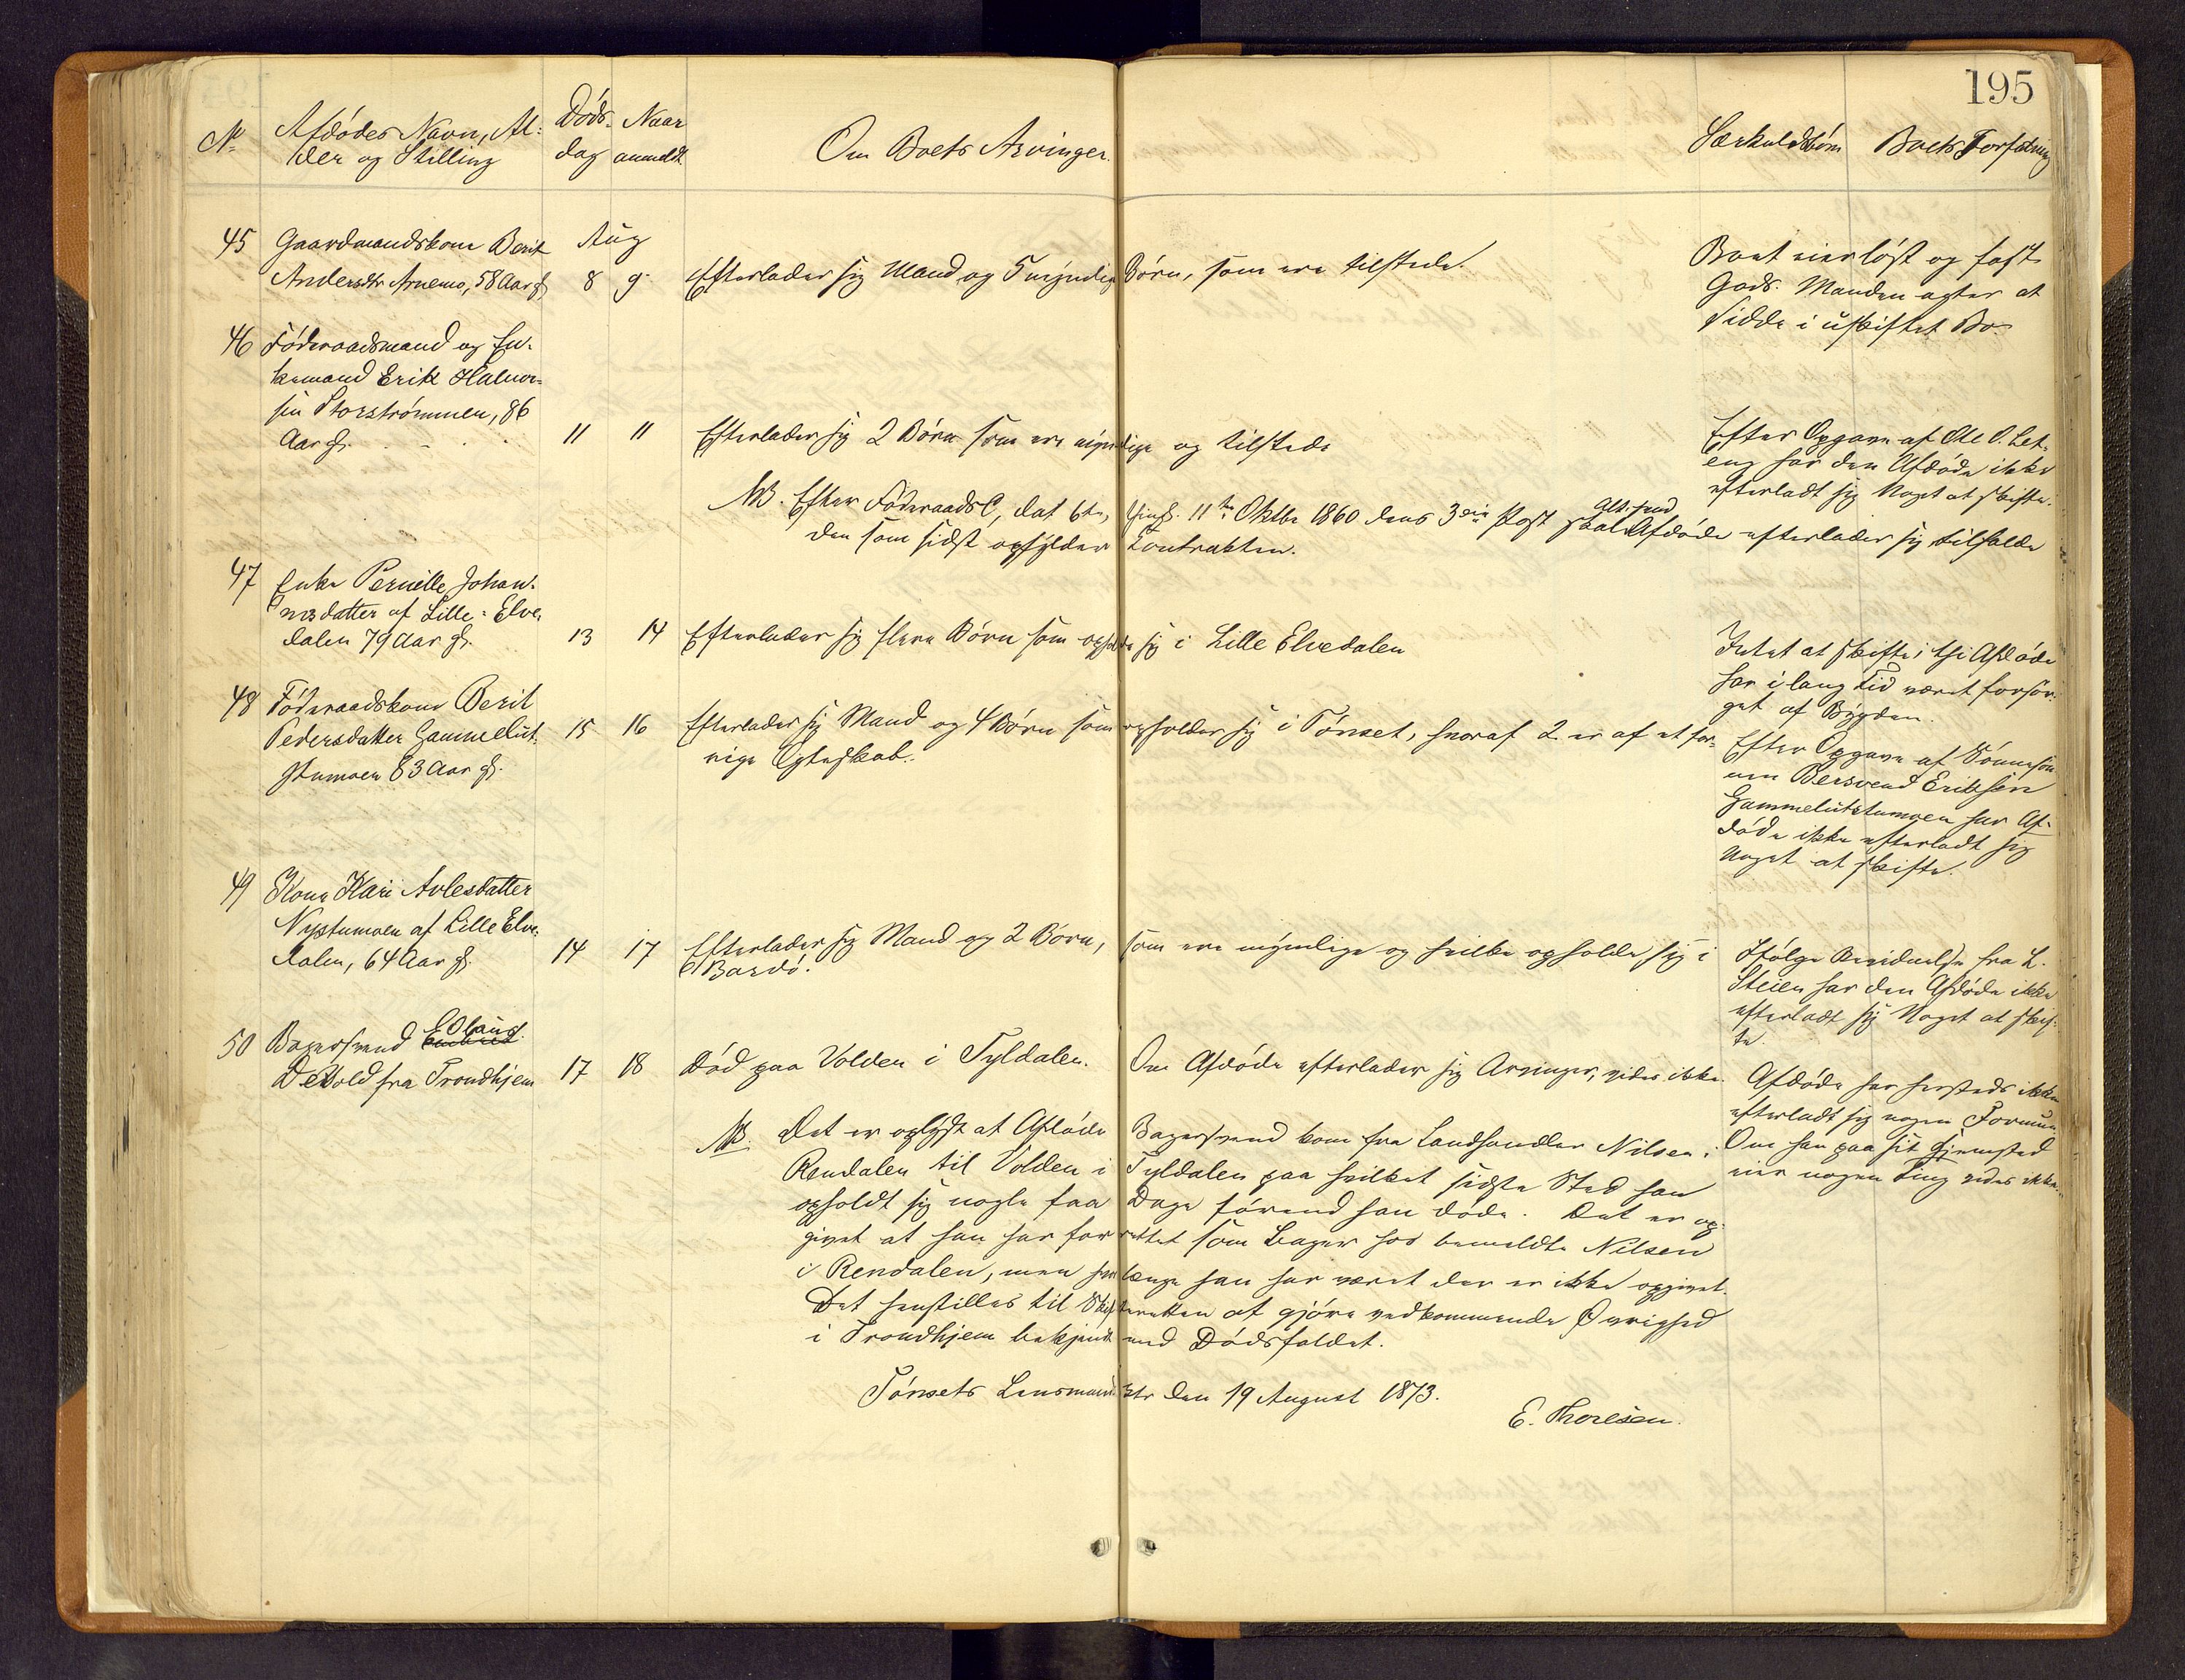 195
No Afdødes Navn, Al-
der og Stilling
Døds-
dag
Naar
anmeldt
Om Boets Arvinger.
Særkuldsbørn
Boets Forfatning
Aug
45 Gaardmandskone Berit
Andersdtr Arnemo, 58 Aar gl
8 9 Efterlader sig Mand og 5 myndige Børn, som ere tilstede.
Boet eier løst og fast
Gods. Manden agter at
sidde i uskiftet Bo.
46 Føderaadsmand og En-
kemand Erik Halvor-
sen Storstrømmen, 86
Aar gl.
11 11 Efterlader sig 2 Børn som ere myndige og tilstede
NB. Efter Føderaads C, dat 6te, thingl. 11te Oktbr 1860 dens 3die Post skal Alt hvad Afdøde efterlader sig tilfalde
den som sidst opfylder Contrakten.
Efter Opgave af Ole O. Let-
eng har den Afdøde ikke
efterladt sig Noget at skifte.
47 Enke Pernille Johan-
nesdatter af Lille-Elve-
dalen 79 Aar gl.
13 14 Efterlader sig flere Børn som opholde sig i Lille Elvedalen
Intet at skifte, thi Afdøde
har i lang Tid været forsør-
get af Bygden.
48 Føderaadskone Berit
Pedersdatter Gammelut-
stumoen 83 Aar gl.
15 16 Efterlader sig Mand og 4 Børn som opholder sig i Tønset, hvoraf 2 er af et for-
rige Ægteskab.
Efter Opgave af Sønnesøn-
nen Bersvend Eriksen
Gammelutstumoen har Af-
døde ikke efterladt sig
Noget at skifte.
49 Kone Kari Avlesdatter
Nystumoen af Lille Elve-
dalen, 64 Aar gl.
14 17 Efterlader sig Mand og 2 Børn, som ere myndige og hvilke opholde sig i
Bardo.
Ifølge Anmeldelse fra L.
Steien har den Afdøde ikke
efterladt sig Noget at skif-
te.
50 Bagersvend Olaus
Devold fra Trondhjem
17 18 Død paa Volden i Tyldalen. Om Afdøde efterlader sig Arvinger, vides ikke.
Afdøde har hersteds ikke
efterladt sig nogen Formue.
Om han paa sit Hjemsted
eier nogen Ting vides ikke.
NB. Det er oplyst at Afdøde Bagersvend kom fra Landhandler Nilsen i
Rendalen til Volden i Tyldalen paa hvilket sidste Sted han
opholdt sig nogle faa Dage førend han døde. Det er op-
givet at han har forrettet som Bager hos bemeldte Nilsen
i Rendalen, men hvorlænge han har været der er ikke opgivet.
Det henstilles til Skifteretten at gjøre vedkommende Øvrighed
i Trondhjem bekjendt med Dødsfaldet.
Tønsets Lensmands Ktr den 19 August 1873.
E. Thoresen.